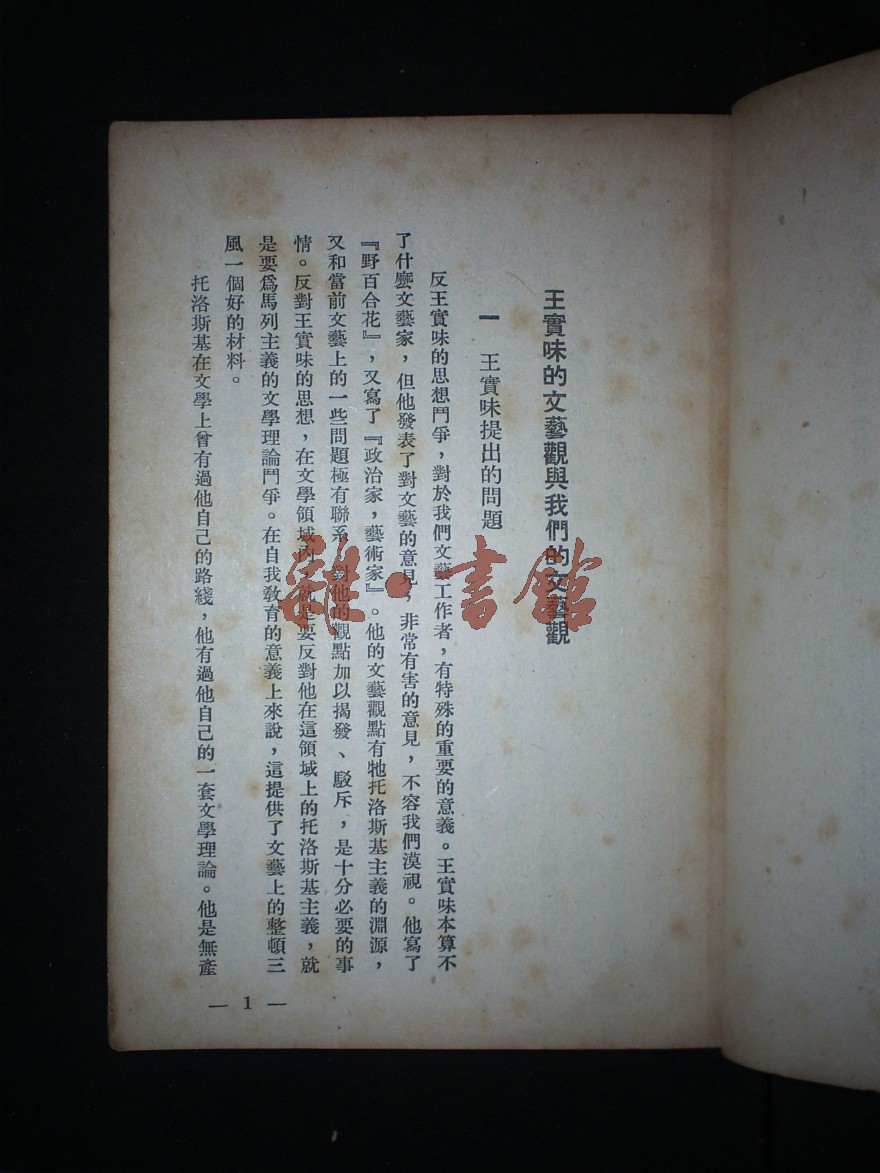 王實味的文藝觀與我們的文藝觀
一 王實味提出的問題
反王實味的思想鬥爭，對於我們文藝工作者，有特殊的重要的意義。王實味本算不
了什麼文藝家，但他發表了對文藝的意見，非常有害的意見，不容我們漠視。他寫了
『野百合花』，又寫了『政治家，藝術家』。他的文藝觀點有牠托洛斯基主義的淵源，
又和當前文藝上的一些問題極有聯系，對他的觀點加以揭發、駁斥，是十分必要的事
情。反對王實味的思想，在文學領域內，就是要反對他在這領域上的托洛斯基主義，就
是要爲馬列主義的文學理論鬥爭。在自我教育的意義上來說，這提供了文藝上的整頓三
風一個好的材料。
托洛斯基在文學上曾有過他自己的路綫，他有過他自己的一套文學理論。他是無產
— 1 —
雜·書館